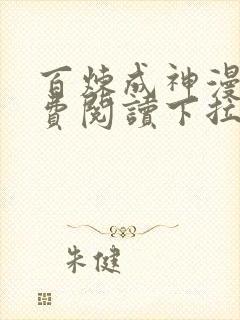 百炼成神漫
费阅讀下拉
朱健